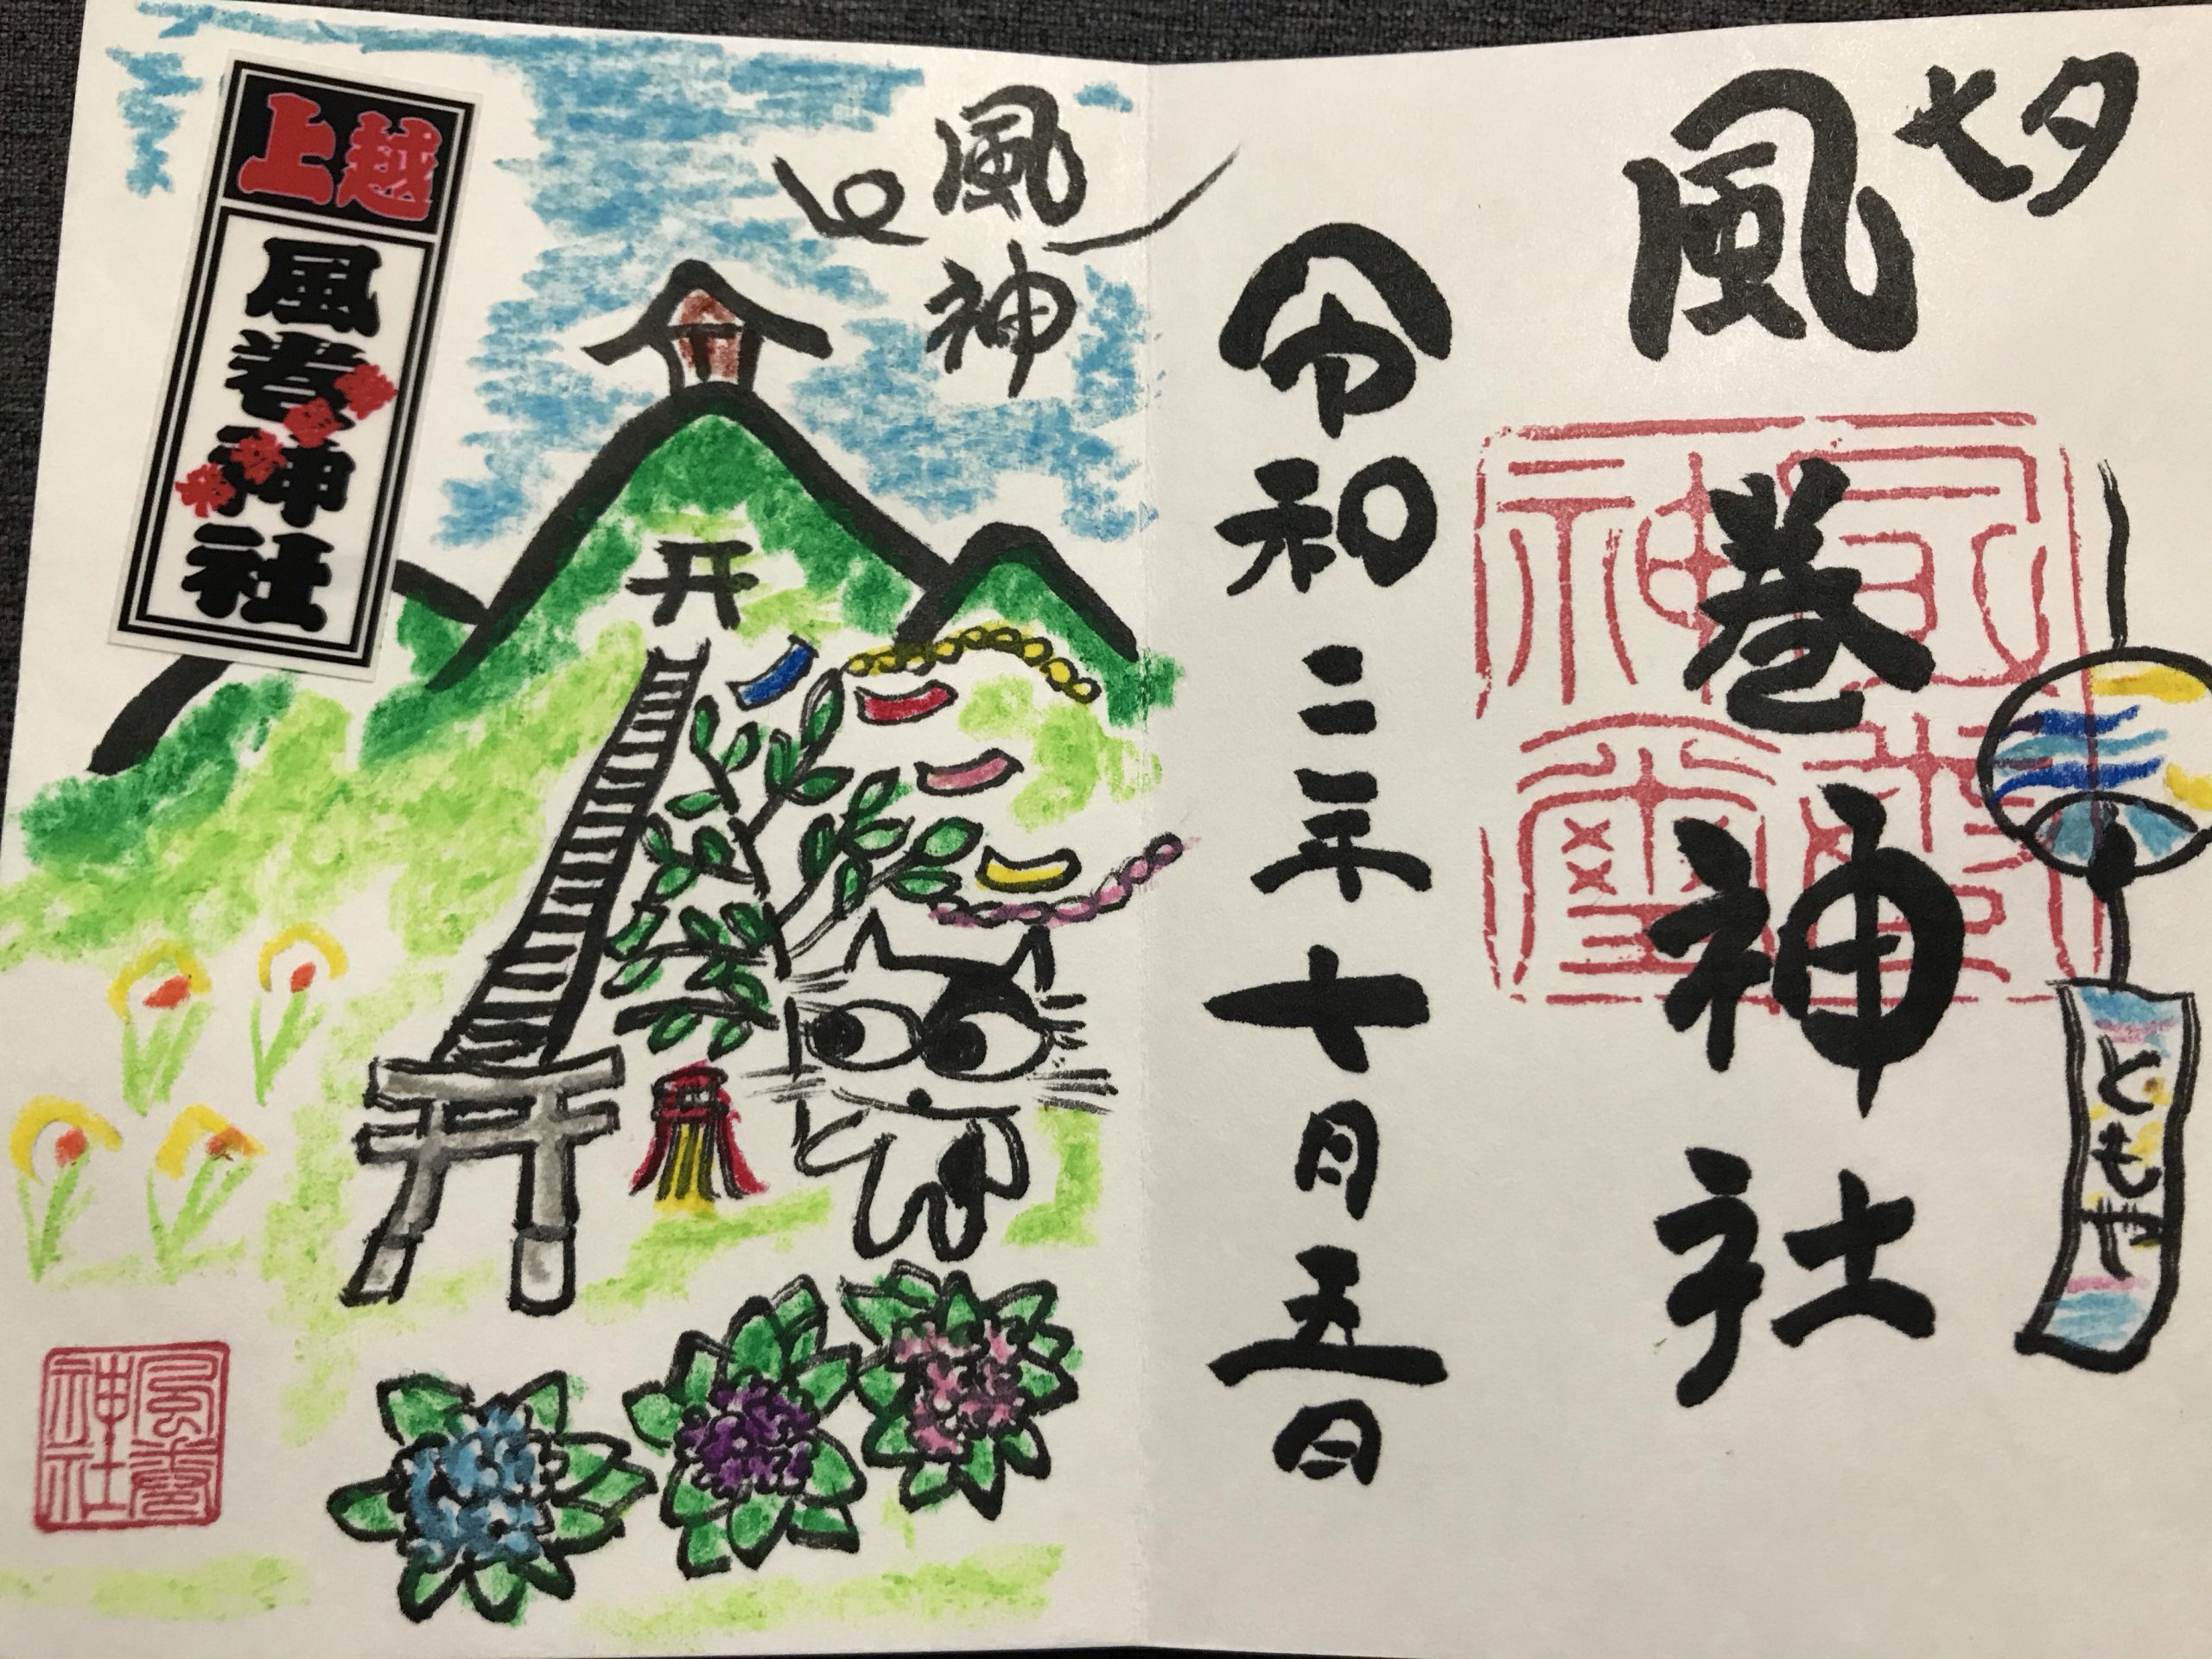 七夕
風巻神社
ともや
令和二年七月五日
風神
上越
風巻神社
風巻神社